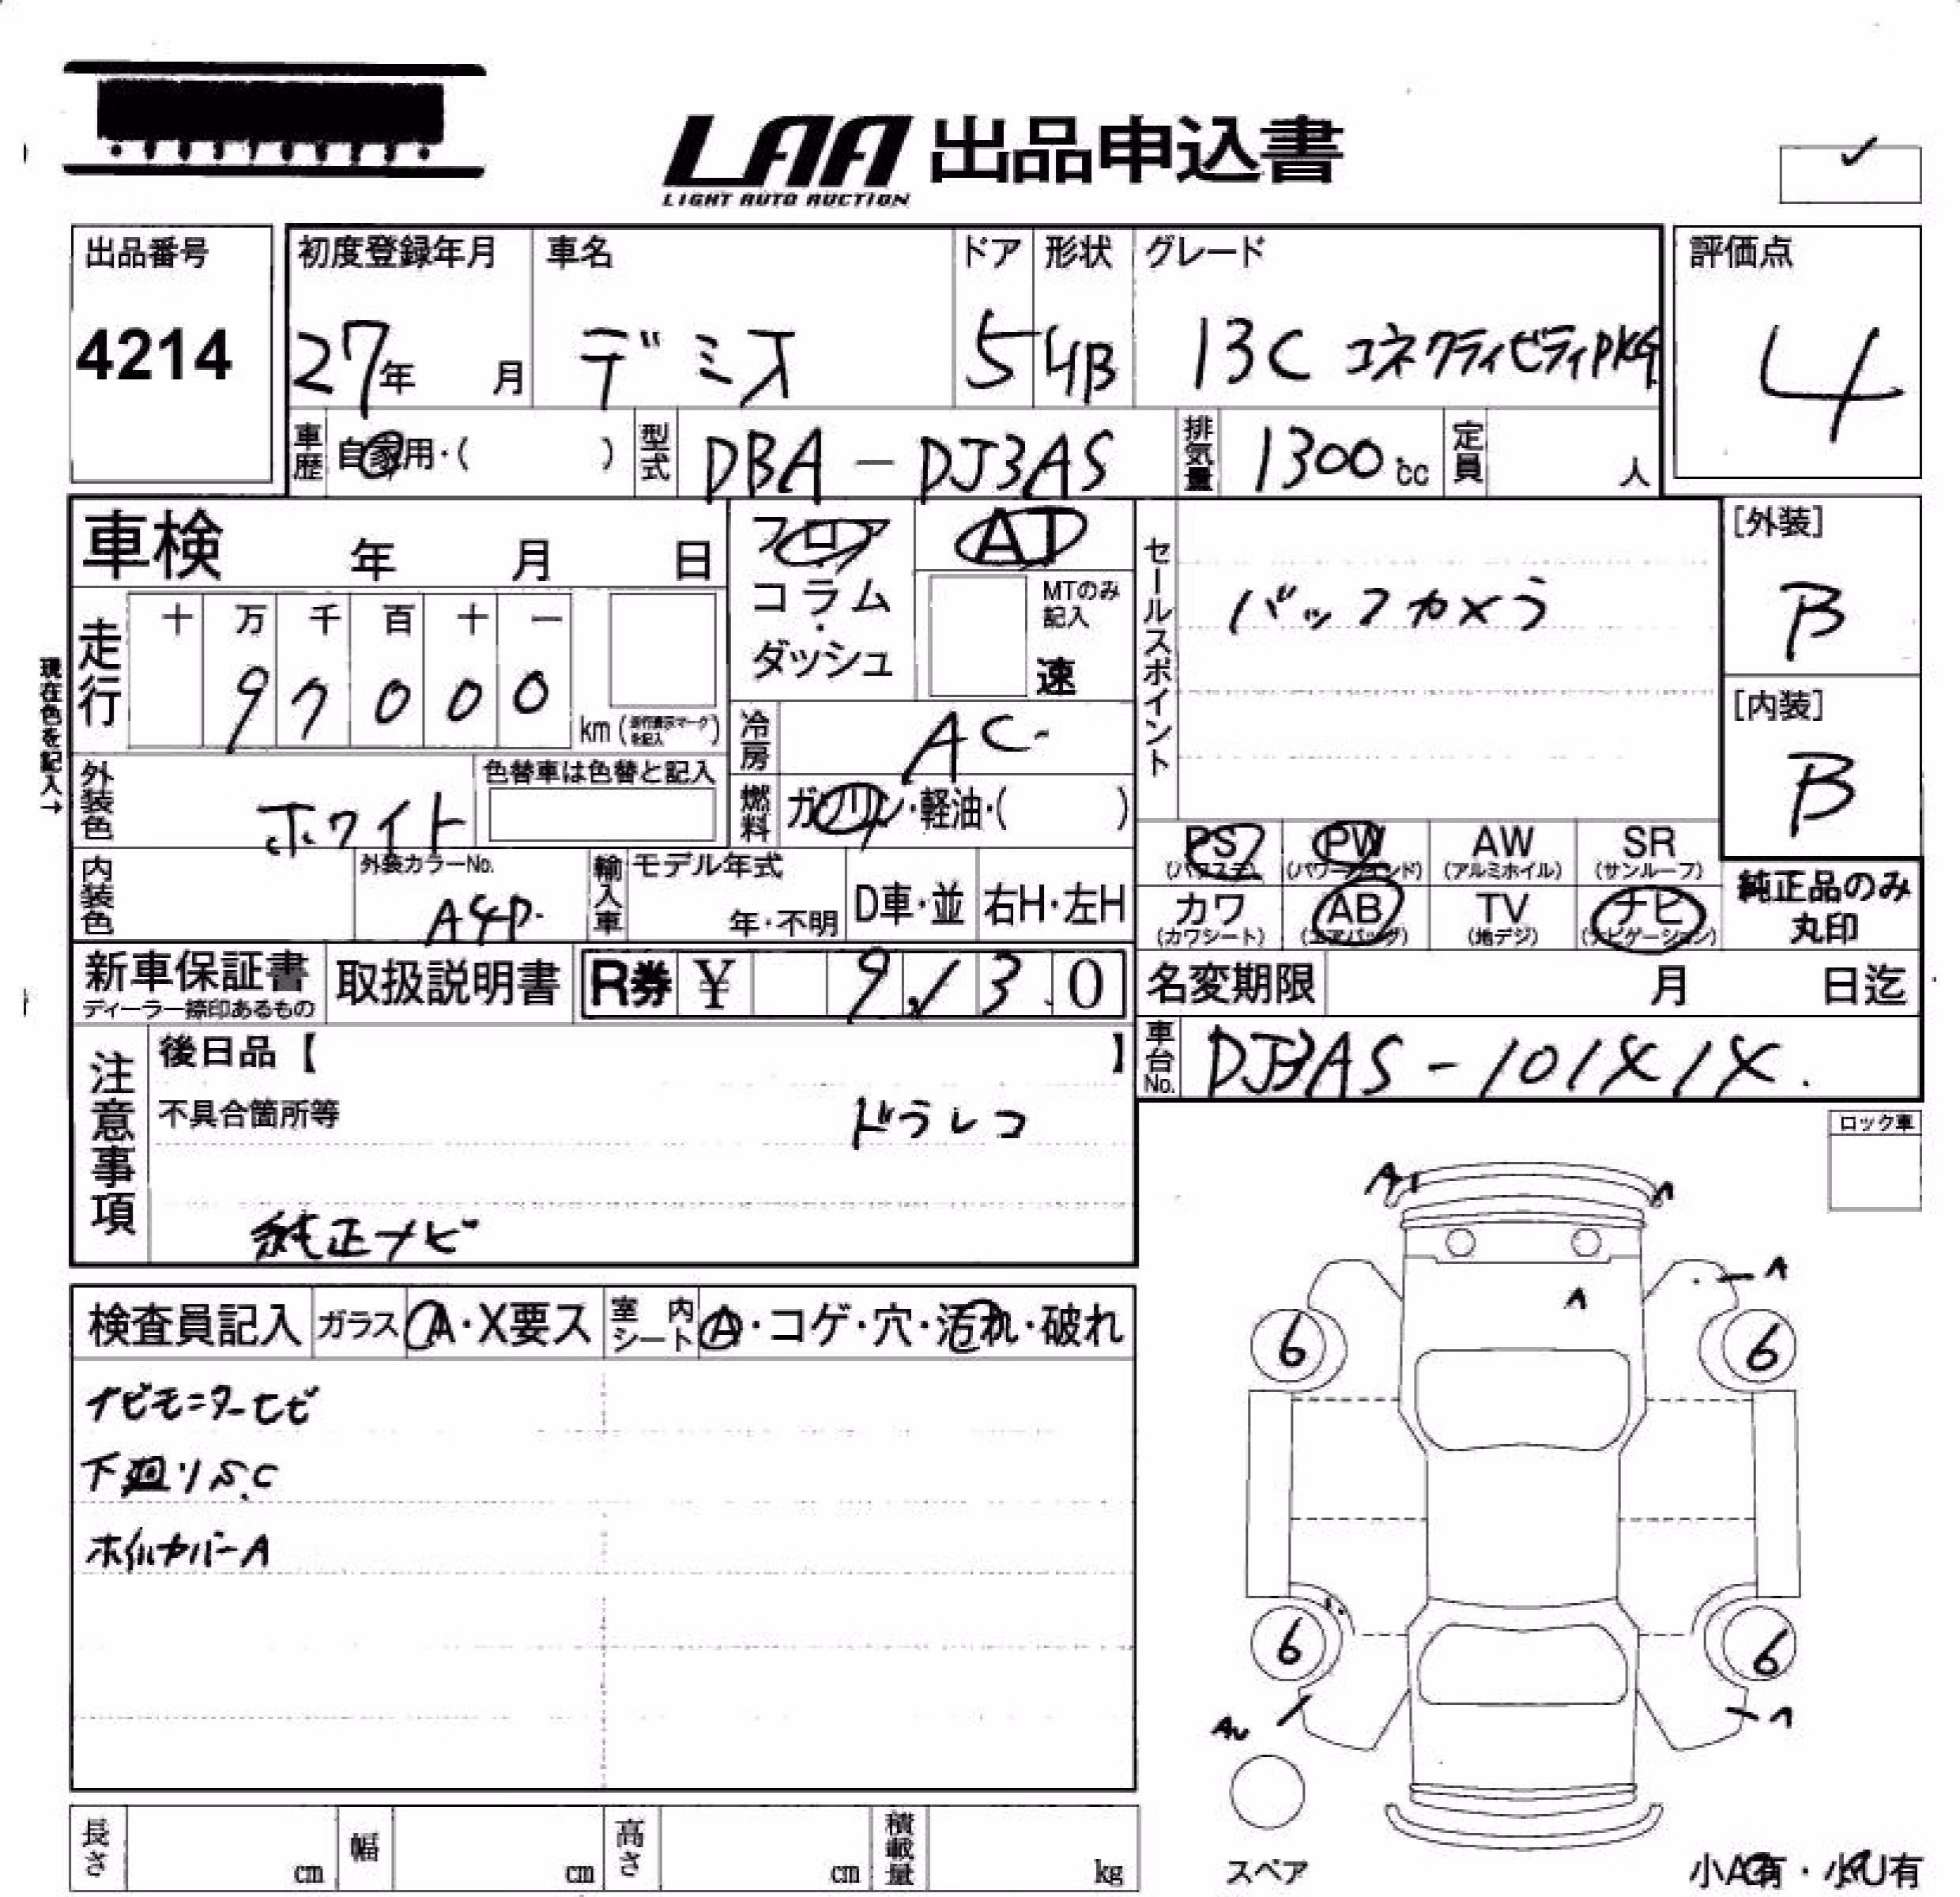 LAA 出品申込書
LIGHT AUTO AUCTION
出品番号
4214
初度登録年月
27年 月
車名
デミオ
ドア
5
形状
HB
グレード
13C コネクティビティPKG
評価点
4
車歴 自家用・( )
型式 DBA-DJ3AS
排気量 1300cc
定員 人
車検 年 月 日
フロア
コラム
・
ダッシュ
AT
MTのみ記入
速
セールスポイント
バックカメラ
[外装]
B
[内装]
B
現在色を記入→
走行
十 万 千 百 十 一
9 7 0 0 0
km
冷房 AC
燃料 ガソリン・軽油・( )
外装色 ホワイト
色替車は色替と記入
内装色
外装カラーNo.
A4D
輸入車
モデル年式
年・不明
D車・並
右H・左H
PS (パワステ)
PW (パワーウインド)
AW (アルミホイル)
SR (サンルーフ)
カワ (カワシート)
AB (エアバッグ)
TV (地デジ)
ナビ (ナビゲーション)
純正品のみ
丸印
新車保証書
ディーラー捺印あるもの
取扱説明書
R券 ¥ 9,130
名変期限 月 日迄
車台No. DJ3AS-101
注意事項
後日品【 】
不具合箇所等
ドラレコ
純正ナビ
ロック車
検査員記入
ガラス A・X要ス
室内シート A・コゲ・穴・汚れ・破れ
ナビモニターヒビ
下廻りS.C
ホイルカバーA
A1
A
A
A
6
6
6
6
スペア
長さ cm
幅 cm
高さ cm
積載量 kg
小A有・小U有